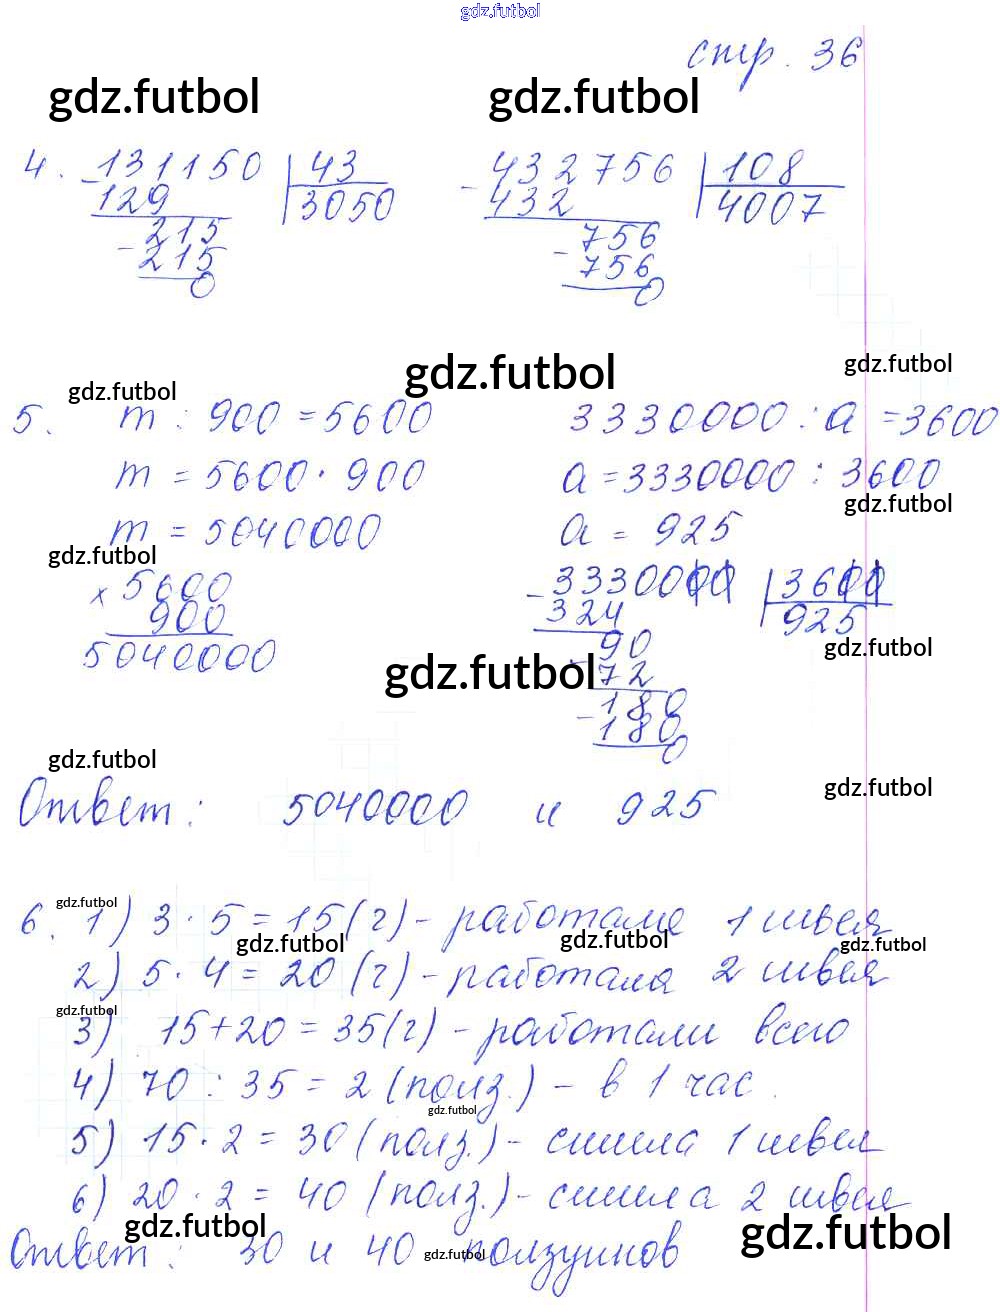 gdz.futbol
стр. 36
gdz.futbol gdz.futbol
4. 131150 | 43 432756 | 108
- 129 | 3050 - 432 | 4007
215 756
- 215 - 756
0 0
gdz.futbol gdz.futbol
gdz.futbol
5. m : 900 = 5600 3330000 : a = 3600
m = 5600 · 900 a = 3330000 : 3600
gdz.futbol
m = 5040000 a = 925
gdz.futbol
x 5600 - 3330000 | 3600
900 324 | 925
5040000 90
gdz.futbol gdz.futbol
- 72
180
- 180
0
gdz.futbol gdz.futbol
Ответ: 5040000 и 925
gdz.futbol
6. 1) 3 · 5 = 15 (ч) - работала 1 швея
gdz.futbol gdz.futbol gdz.futbol
2) 5 · 4 = 20 (ч) - работала 2 швея
gdz.futbol
3) 15 + 20 = 35 (ч) - работали всего
4) 70 : 35 = 2 (полз.) - в 1 час.
gdz.futbol
5) 15 · 2 = 30 (полз.) - сшила 1 швея
6) 20 · 2 = 40 (полз.) - сшила 2 швея
gdz.futbol gdz.futbol
Ответ: 30 и 40 ползунков
gdz.futbol